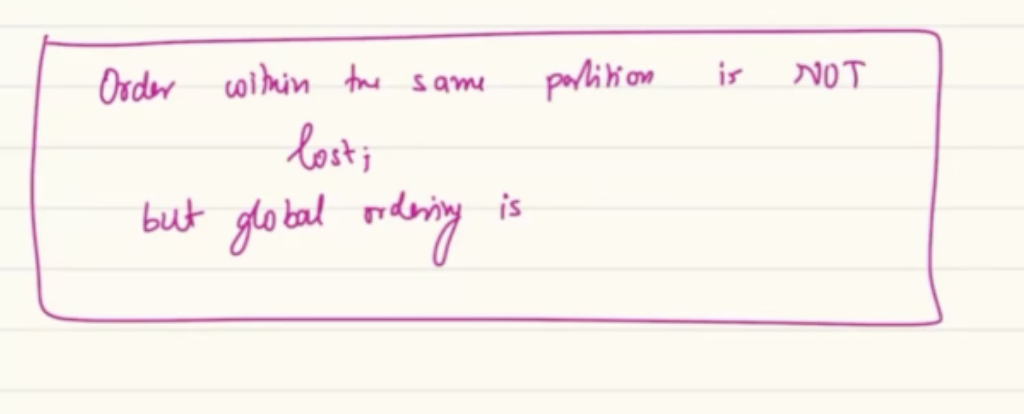 Order within the same partition is NOT
lost;
but global ordering is